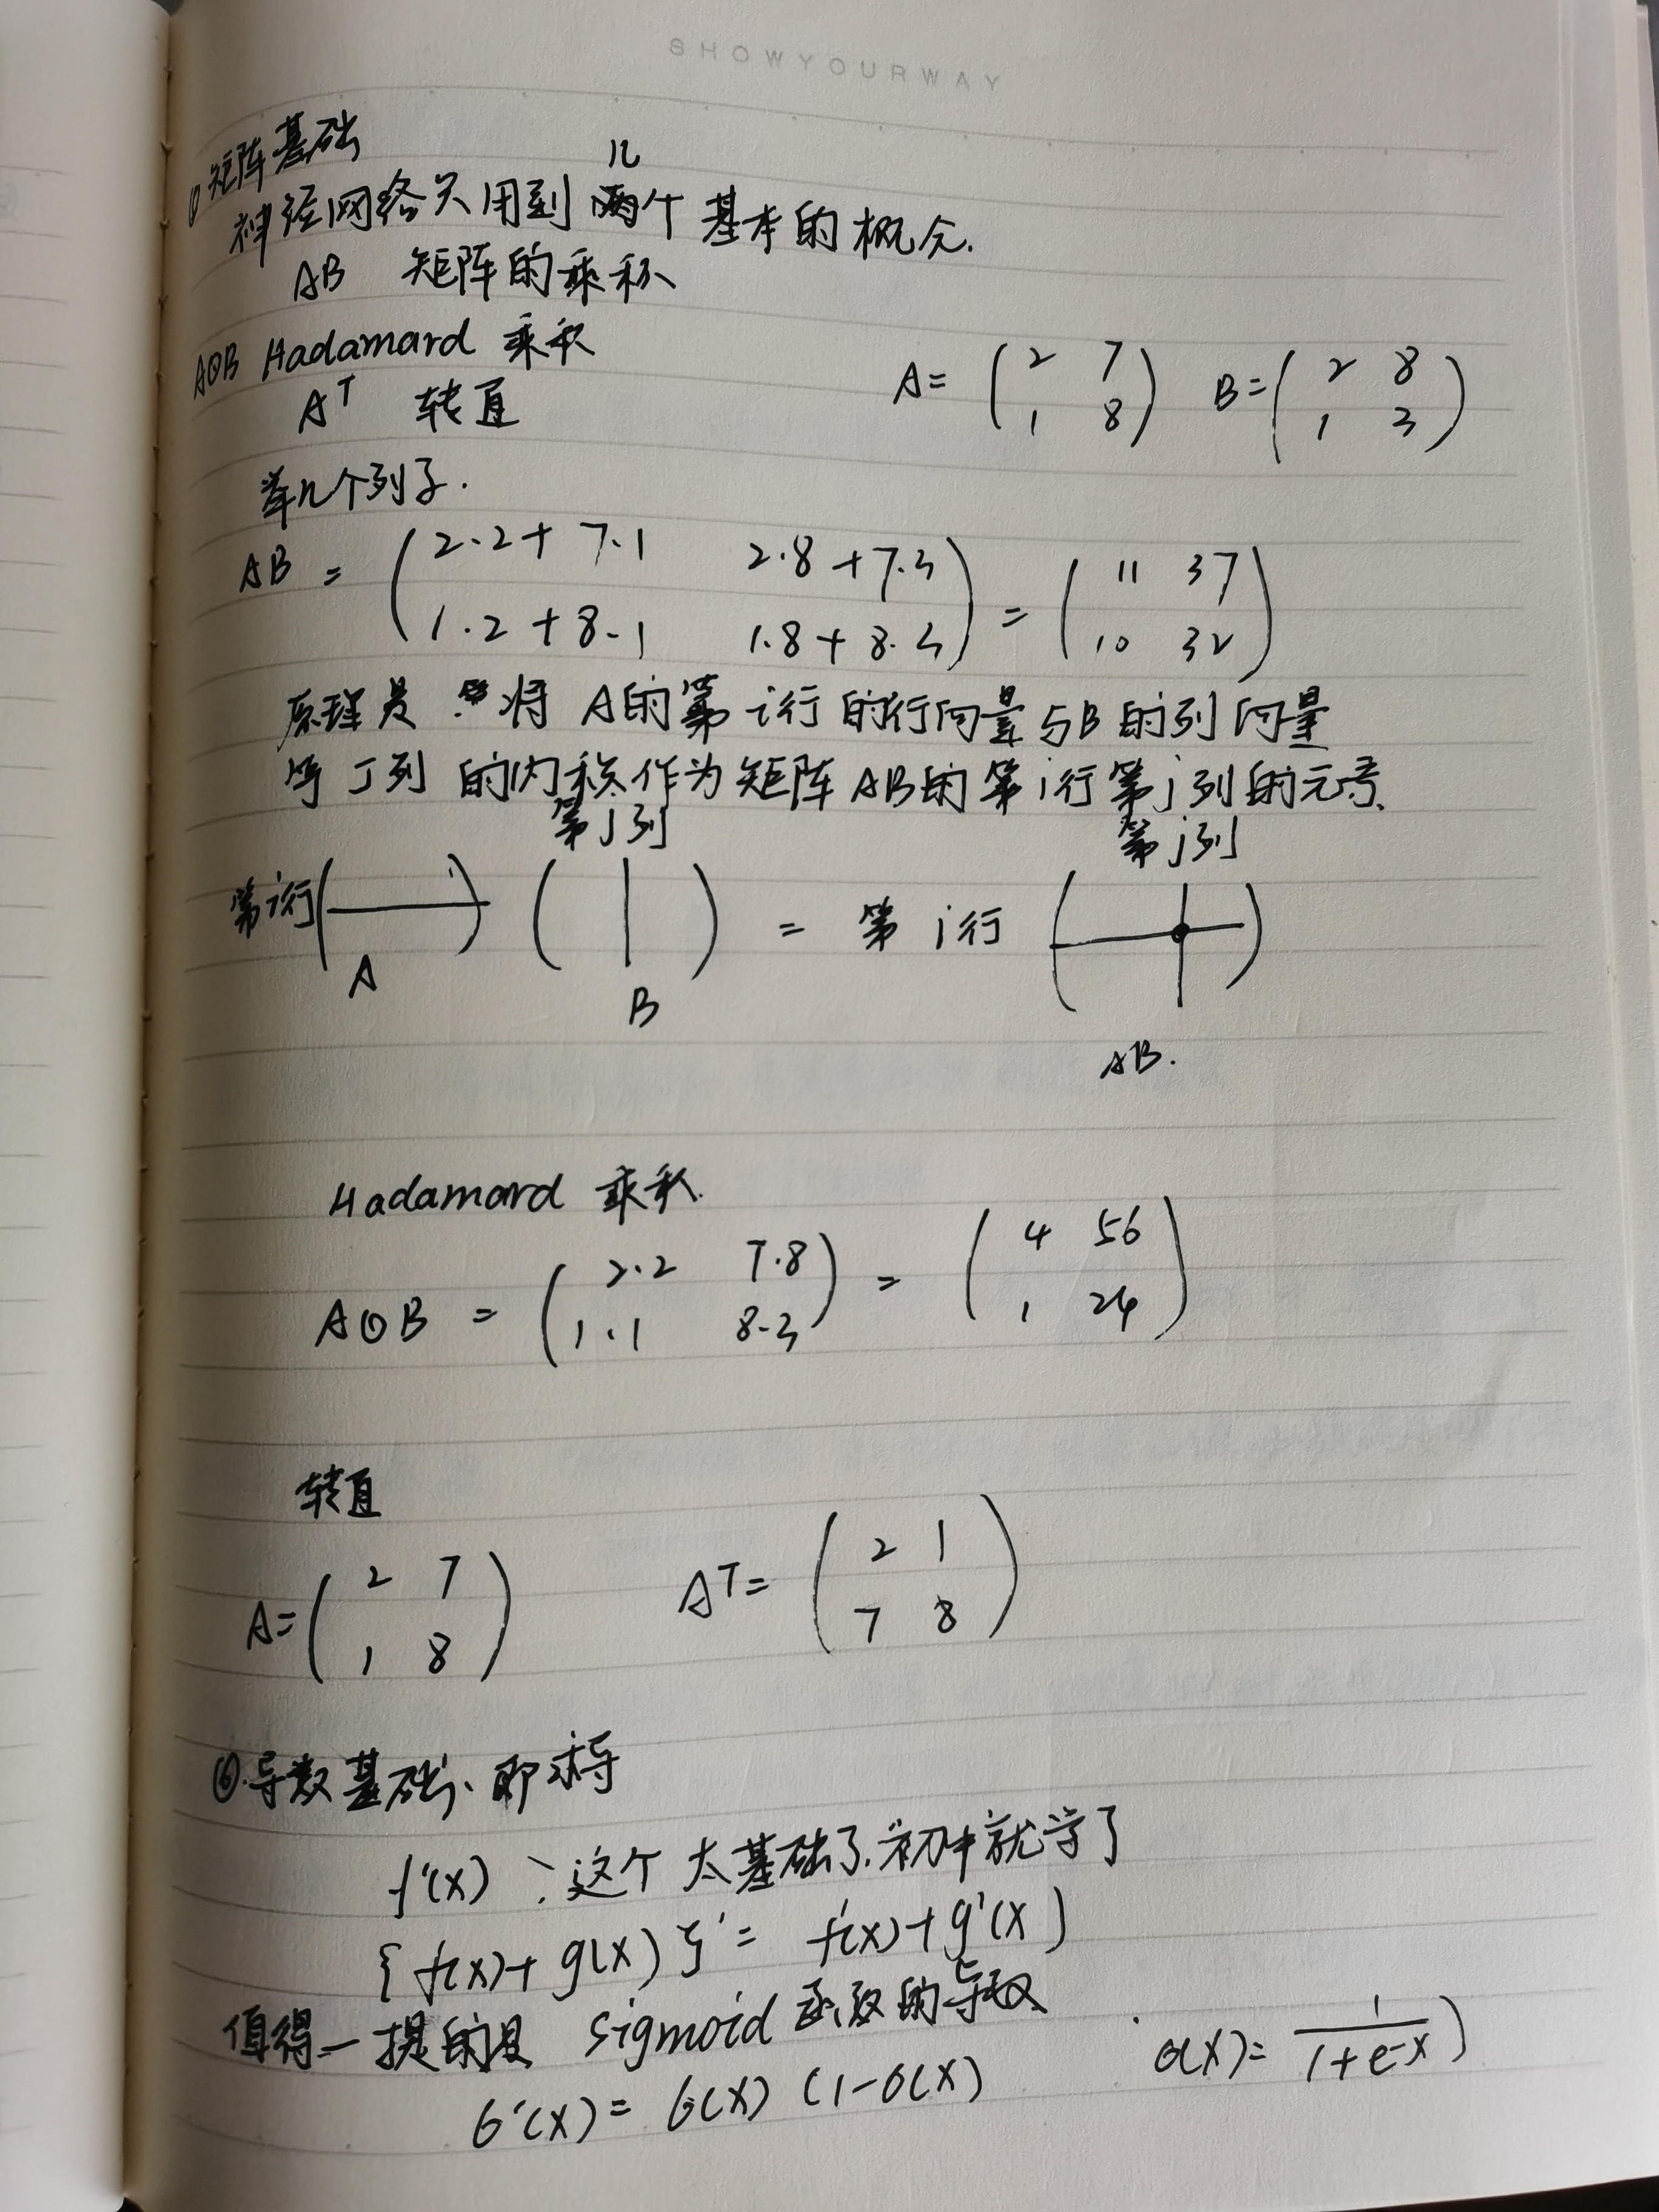 SHOWYOURWAY
矩阵基础
神经网络只用到几个基本的概念.
AB 矩阵的乘积
A⊙B Hadamard 乘积
A^T 转置
A= (2 7
1 8) B= (2 8
1 3)
举几个列子.
AB = (2·2+7·1 2·8+7·3
1·2+8·1 1·8+8·3) = (11 37
10 32)
原理是 将 A的第 i行的行向量与B的列向量
第 J列 的内积作为矩阵AB的第i行第j列的元素
第j列 第j列
第i行 ( ) ( ) = 第 i行 ( )
A
B
AB.
Hadamard 乘积.
A⊙B = (2·2 7·8
1·1 8·3) = (4 56
1 24)
转置
A= (2 7
1 8) A^T= (2 1
7 8)
⑥.导数基础、即求导
f'(x) 这个太基础了.初中就学了
{f(x)+g(x)}' = f'(x)+g'(x)
值得一提的是 Sigmoid 函数的导数
σ(x)= 1/(1+e^-x) )
σ'(x)= σ(x) (1-σ(x)